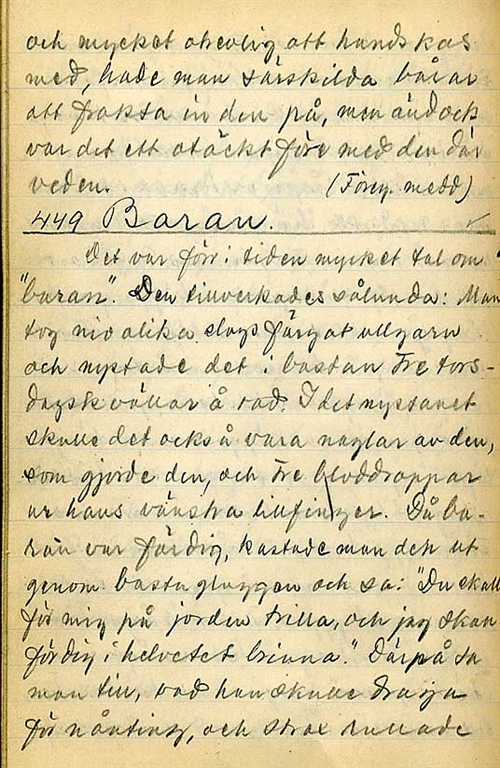 och mycket otrevlig att handskas
med, hade man särskilda bårar
att frakta in den på, men ändock
var det ett otäckt före med den där
veden. (Föreg. medd)
449 Baran.
Det var förr i tiden mycket tal om
"baran". Den tillverkades sålunda: Man
tog nio olika slags färgat ullgarn
och nystade det i bastan tre tors-
dagskvällar å rad. I det nystanet
skulle det också vara naglar av den,
som gjorde den, och tre bloddroppar
ur hans vänstra lillfinger. Då ba-
ran var färdig, kastade man den ut
genom bastugluggen och sa: "Du skall
för mig på jorden trilla, och jag skall
för dig i helvetet brinna." Därpå sa
man till, vad han skulle draga
för nånting, och strax rullade